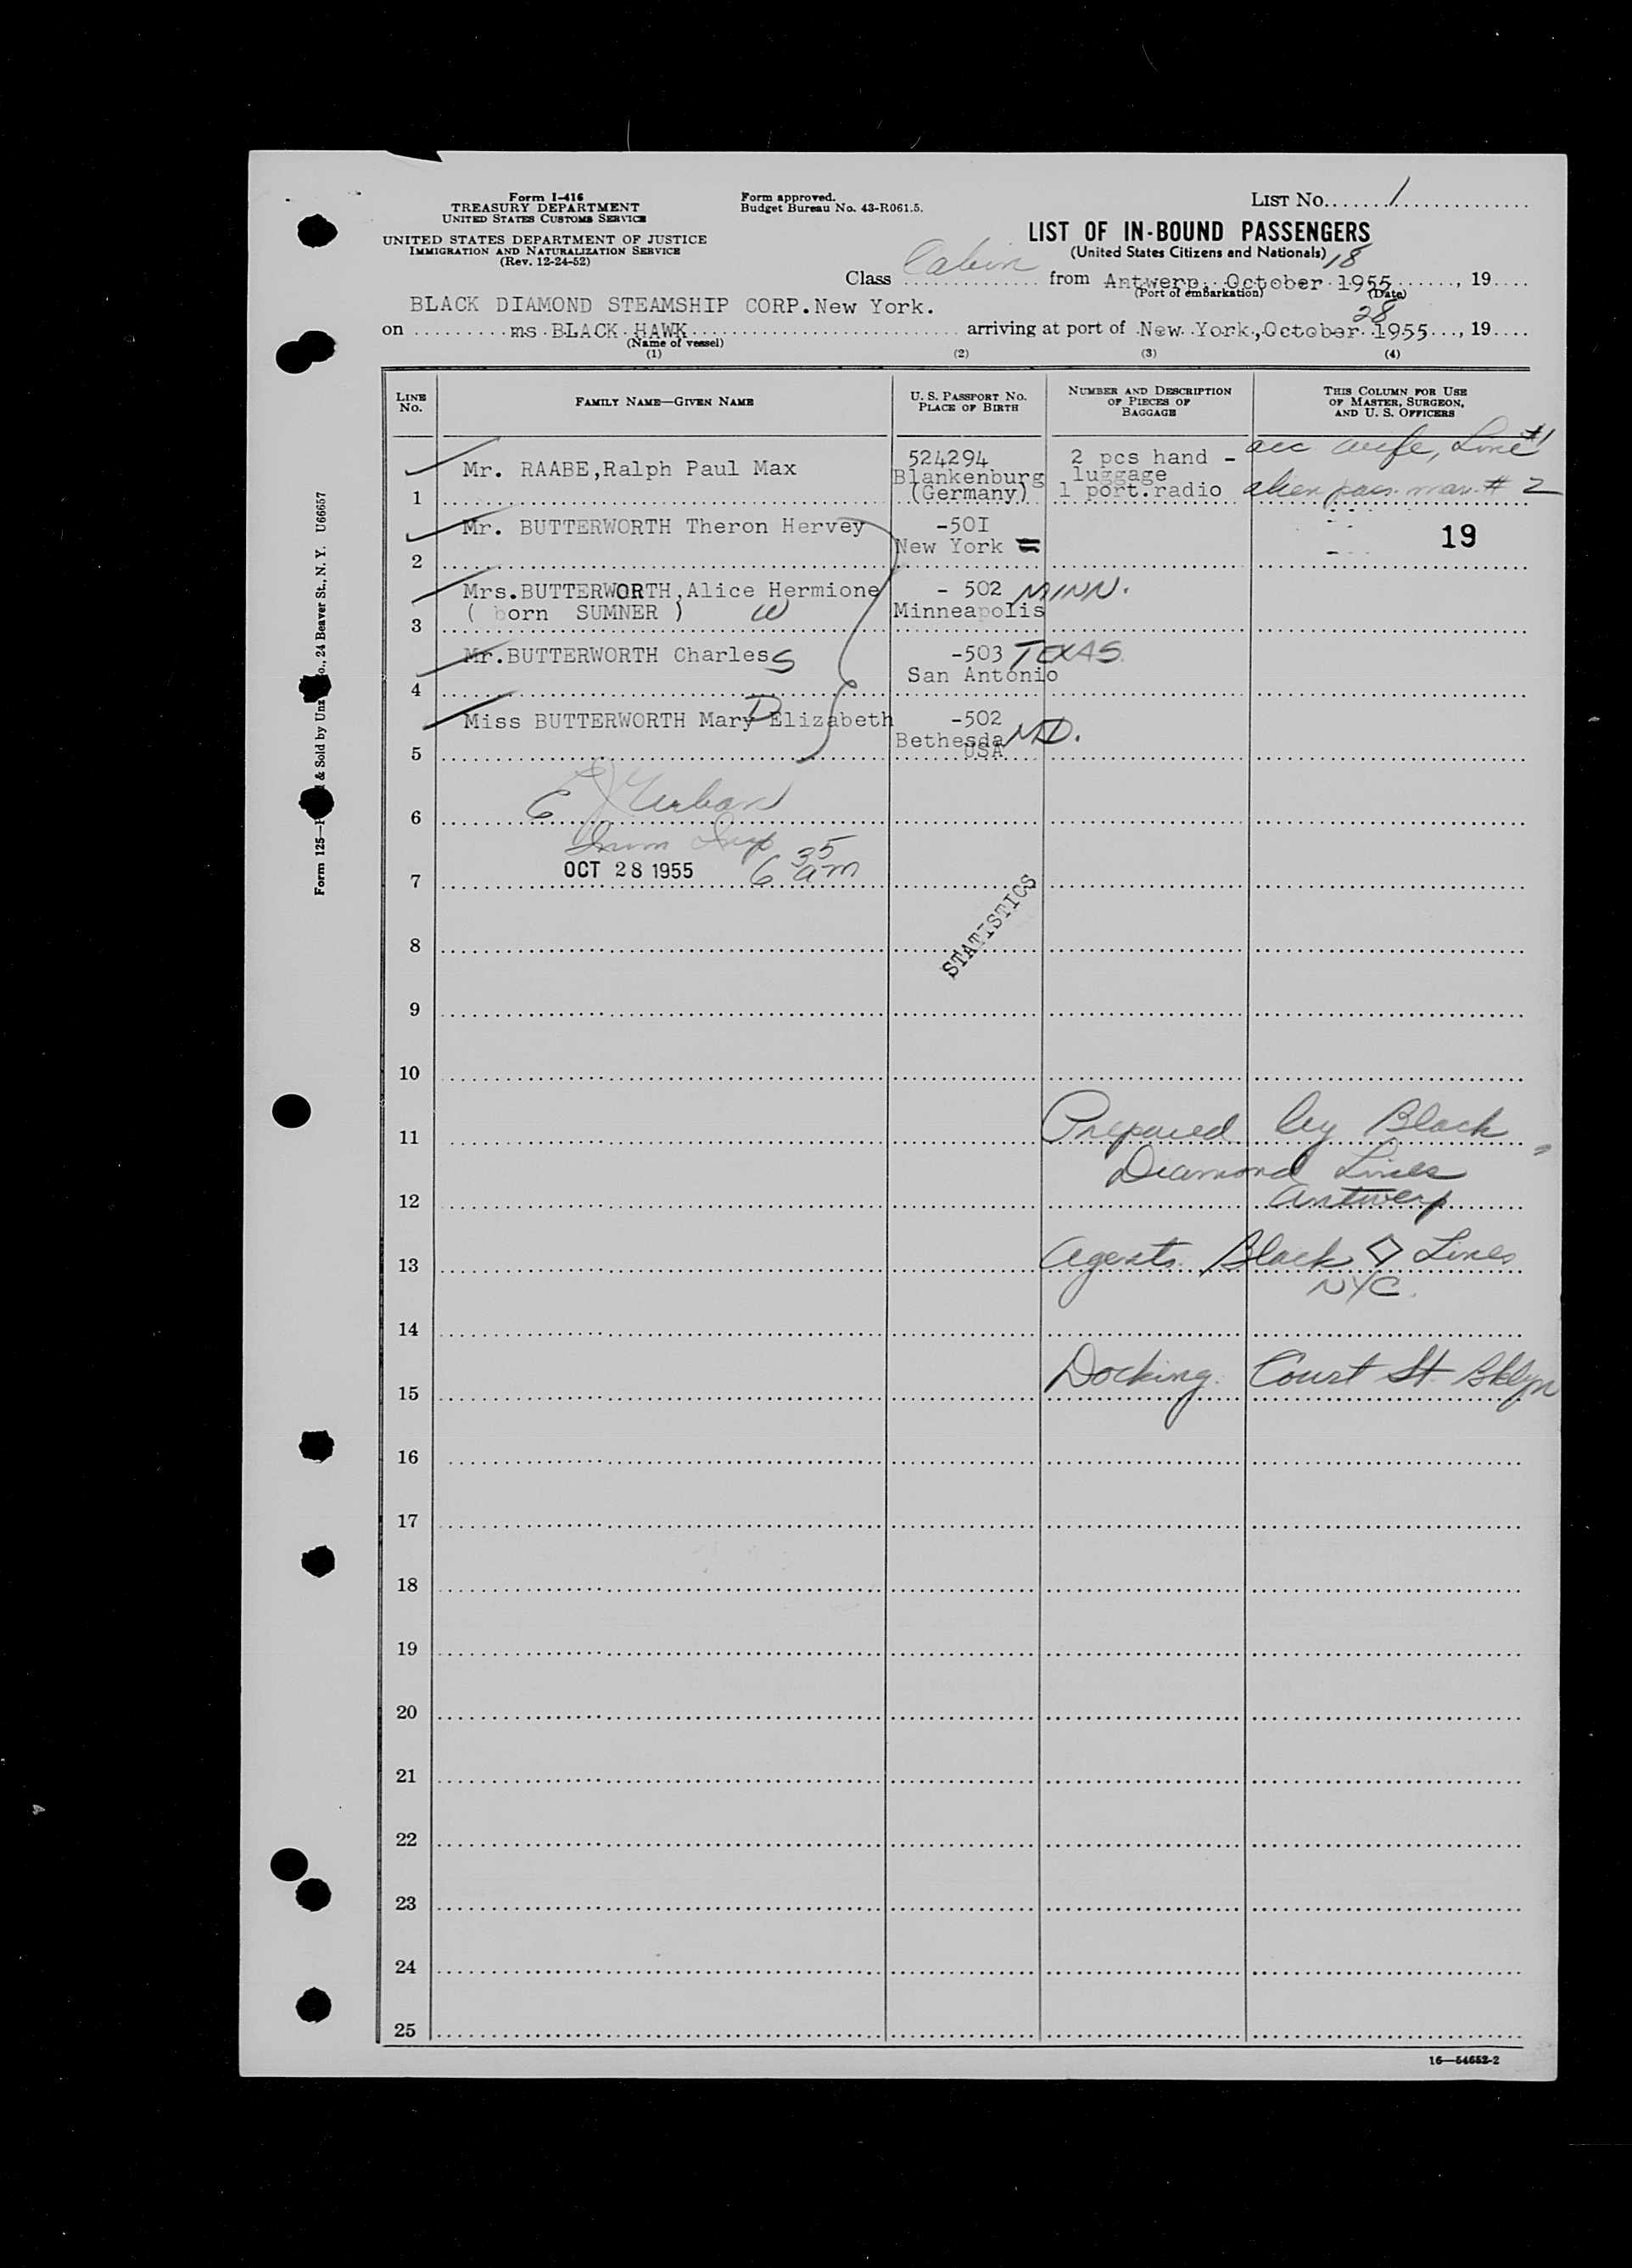 Form I-416
TREASURY DEPARTMENT
UNITED STATES CUSTOMS SERVICE
UNITED STATES DEPARTMENT OF JUSTICE
IMMIGRATION AND NATURALIZATION SERVICE
(Rev. 12-24-52)
Form approved.
Budget Bureau No. 43-R061.5.
LIST NO. 1
LIST OF IN-BOUND PASSENGERS
(United States Citizens and Nationals)
Class Cabin from Antwerp, October 18 1955, 19
(Port of embarkation) (Date)
BLACK DIAMOND STEAMSHIP CORP. New York.
on ms BLACK HAWK arriving at port of New York, October 28 1955, 19
(Name of vessel)
(1) (2) (3) (4)
LINE NO. FAMILY NAME—GIVEN NAME U. S. PASSPORT NO. PLACE OF BIRTH NUMBER AND DESCRIPTION OF PIECES OF BAGGAGE THIS COLUMN FOR USE OF MASTER, SURGEON, AND U. S. OFFICERS
1 Mr. RAABE, Ralph Paul Max 524294 Blankenburg (Germany) 2 pcs hand - luggage 1 port.radio acc wife, Line #1 alien pass. man. # 2
2 Mr. BUTTERWORTH Theron Hervey -50I New York 19
3 Mrs. BUTTERWORTH, Alice Hermione ( born SUMNER ) W - 502 MINN. Minneapolis
4 Mr. BUTTERWORTH Charles S -503 TEXAS. San Antonio
5 Miss BUTTERWORTH Mary D Elizabeth -502 Bethesda MD. USA
6 Urban
Imm Insp
7 OCT 28 1955 6 35 am
STATISTICS
8
9
10
11 Prepared by Black
Diamond Lines
12 Antwerp
13 Agents Black ◇ Lines
NYC.
14
15 Docking Court St. Bklyn
16
17
18
19
20
21
22
23
24
25
16—54652-2
Form 125— & Sold by Unz Co., 24 Beaver St., N. Y. U66657